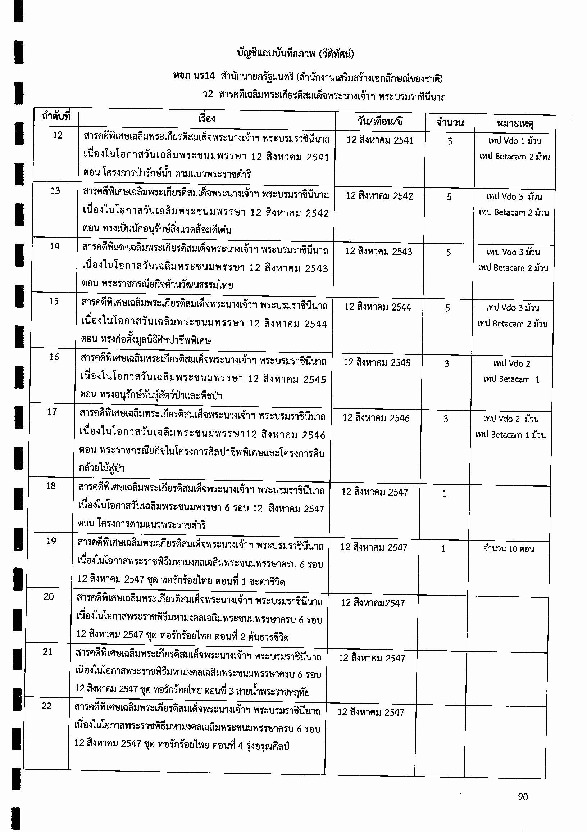 บัญชีแถบบันทึกภาพ (วีดิทัศน์)
หจภ นร14 สำนักนายกรัฐมนตรี (สำนักงานเสริมสร้างเอกลักษณ์ของชาติ)
ว2 สารคดีเฉลิมพระเกียรติสมเด็จพระนางเจ้าฯ พระบรมราชินีนาถ
ลำดับที่ เรื่อง วัน/เดือน/ปี จำนวน หมายเหตุ
12 สารคดีพิเศษเฉลิมพระเกียรติสมเด็จพระนางเจ้าฯ พระบรมราชินีนาถ 12 สิงหาคม 2541 3 เทป Vdo 1 ม้วน
เนื่องในโอกาสวันเฉลิมพระชนมพรรษา 12 สิงหาคม 2541 เทป Betacam 2 ม้วน
ตอน โครงการป่ารักษ์น้ำ ตามแนวพระราชดำริ
13 สารคดีพิเศษเฉลิมพระเกียรติสมเด็จพระนางเจ้าฯ พระบรมราชินีนาถ 12 สิงหาคม 2542 5 เทป Vdo 3 ม้วน
เนื่องในโอกาสวันเฉลิมพระชนมพรรษา 12 สิงหาคม 2542 เทป Betacam 2 ม้วน
ตอน ทรงเป็นนักอนุรักษ์สิ่งแวดล้อมดีเด่น
14 สารคดีพิเศษเฉลิมพระเกียรติสมเด็จพระนางเจ้าฯ พระบรมราชินีนาถ 12 สิงหาคม 2543 5 เทป Vdo 3 ม้วน
เนื่องในโอกาสวันเฉลิมพระชนมพรรษา 12 สิงหาคม 2543 เทป Betacam 2 ม้วน
ตอน พระราชกรณียกิจด้านวัฒนธรรมไทย
15 สารคดีพิเศษเฉลิมพระเกียรติสมเด็จพระนางเจ้าฯ พระบรมราชินีนาถ 12 สิงหาคม 2544 5 เทป Vdo 3 ม้วน
เนื่องในโอกาสวันเฉลิมพระชนมพรรษา 12 สิงหาคม 2544 เทป Betacam 2 ม้วน
ตอน ทรงก่อตั้งมูลนิธิศิลปาชีพพิเศษ
16 สารคดีพิเศษเฉลิมพระเกียรติสมเด็จพระนางเจ้าฯ พระบรมราชินีนาถ 12 สิงหาคม 2545 3 เทป Vdo 2
เนื่องในโอกาสวันเฉลิมพระชนมพรรษา 12 สิงหาคม 2545 เทป Betacam 1
ตอน ทรงอนุรักษ์พันธุ์สัตว์ป่าและพืชป่า
17 สารคดีพิเศษเฉลิมพระเกียรติสมเด็จพระนางเจ้าฯ พระบรมราชินีนาถ 12 สิงหาคม 2546 3 เทป Vdo 2 ม้วน
เนื่องในโอกาสวันเฉลิมพระชนมพรรษา12 สิงหาคม 2546 เทป Betacam 1 ม้วน
ตอน พระราชกรณียกิจในโครงการศิลปาชีพพิเศษและโครงการคืน
กล้วยไม้สู่ป่า
18 สารคดีพิเศษเฉลิมพระเกียรติสมเด็จพระนางเจ้าฯ พระบรมราชินีนาถ 12 สิงหาคม 2547 1
เนื่องในโอกาสวันเฉลิมพระชนมพรรษา 6 รอบ 12 สิงหาคม 2547
ตอน โครงการตามแนวพระราชดำริ
19 สารคดีพิเศษเฉลิมพระเกียรติสมเด็จพระนางเจ้าฯ พระบรมราชินีนาถ 12 สิงหาคม 2547 1 จำนวน 10 ตอน
เนื่องในโอกาสพระราชพิธีมหามงคลเฉลิมพระชนมพรรษาครบ 6 รอบ
12 สิงหาคม 2547 ชุด ทอรักร้อยไทย ตอนที่ 1
20 สารคดีพิเศษเฉลิมพระเกียรติสมเด็จพระนางเจ้าฯ พระบรมราชินีนาถ 12 สิงหาคม2547
เนื่องในโอกาสพระราชพิธีมหามงคลเฉลิมพระชนมพรรษาครบ 6 รอบ
12 สิงหาคม 2547 ชุด ทอรักร้อยไทย ตอนที่ 2
21 สารคดีพิเศษเฉลิมพระเกียรติสมเด็จพระนางเจ้าฯ พระบรมราชินีนาถ 12 สิงหาคม 2547
เนื่องในโอกาสพระราชพิธีมหามงคลเฉลิมพระชนมพรรษาครบ 6 รอบ
12 สิงหาคม 2547 ชุด ทอรักร้อยไทย ตอนที่ 3 สายน้ำพระราชหฤทัย
22 สารคดีพิเศษเฉลิมพระเกียรติสมเด็จพระนางเจ้าฯ พระบรมราชินีนาถ 12 สิงหาคม 2547
เนื่องในโอกาสพระราชพิธีมหามงคลเฉลิมพระชนมพรรษาครบ 6 รอบ
12 สิงหาคม 2547 ชุด ทอรักร้อยไทย ตอนที่ 4 รุ่งอรุณศิลป์
90